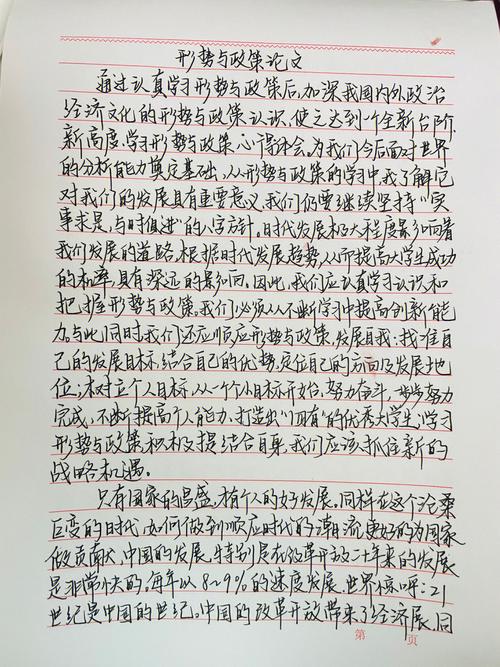 形势与政策论文
通过认真学习形势与政策后,加深我国内外政治
经济文化的形势与政策认识,使之达到一个全新台阶,
新高度.学习形势与政策心得体会,为我们今后面对世界
的分析能力奠定基础,从形势与政策的学习中,我了解它
对我们的发展具有重要意义.我们仍要继续坚持"实
事求是,与时俱进"的八字方针。时代发展极大程度影响着
我们发展的道路,根据时代发展趋势,从而提高大学生成功
的机率,具有深远的影响。因此,我们应认真学习认识和
把握形势与政策。我们必须从不断学习中提高创新能
力。与此同时我们还应顺应形势与政策,发展自我:找准自
己的发展目标,结合自己的优势,定位自己的方向及发展地
位;树立个人目标,从一个个小目标开始,努力奋斗,步步努力
完成,不断提高个人能力,打造出"四有"的优秀大学生;学习
形势与政策积极提结合自身,我们应该抓住新的
战略机遇。
只有国家的昌盛,才有个人的好发展。同样在这个沧桑
巨变的时代,如何做到顺应时代的潮流,更好的为国家
做贡献,中国的发展,特别是在改革开放二十年来的发展
是非常快的。每年以8~9%的速度发展.世界惊呼:21
世纪是中国的世纪。中国的改革开放带来了经济展,同
第 页